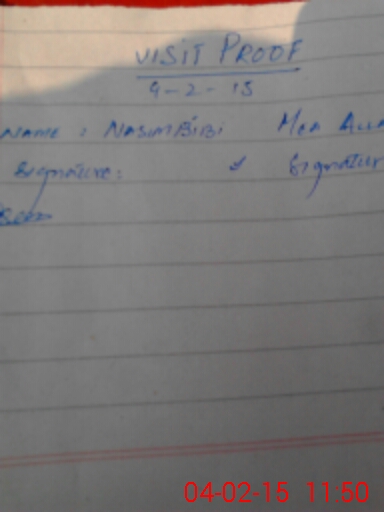 VISIT PROOF
4-2-15
NAME : NASIMBIBI
Signature: Signatur
04-02-15 11:50